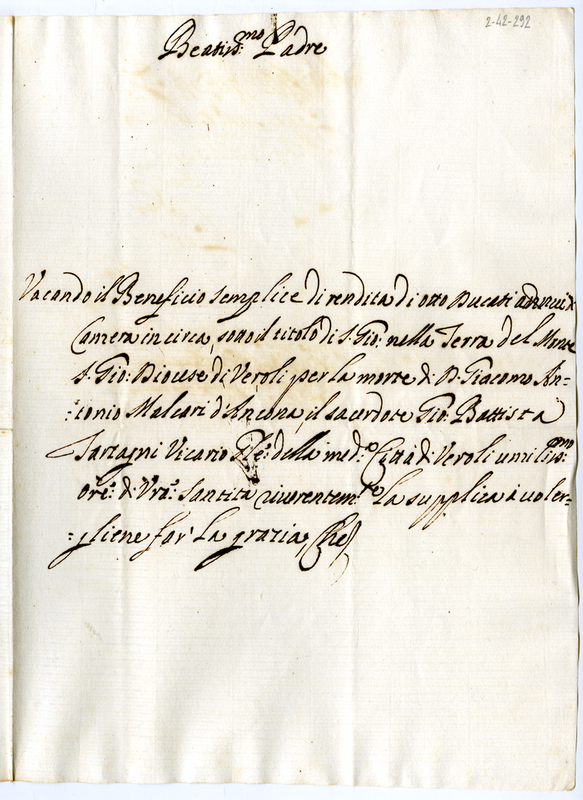 2-42-292
Beatiss.mo Padre
Vacando il Beneficio semplice di rendita di otto Ducati annui di
Camera in circa, sotto il titolo di S. Gio: nella Terra del Monte
S. Gio: Diocese di Veroli per la morte di D. Giacomo An-
:tonio Malcari d'Ancona, il sacerdote Gio: Battista
Tartagni Vicario Gle: della med.a Città di Veroli umiliss:mo
Ore: di Vra: Santità riverentem.e La supplica à voler-
:gliene far La grazia, Che